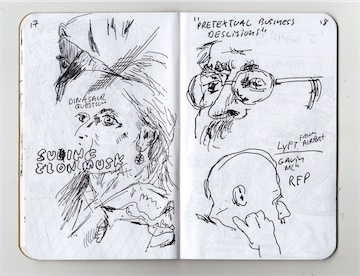 17
DINOSAUR
QUESTION
SUEING
ELON MUSK
18
"PRETEXTUAL BUSINESS
DESCISIONS"
LYFT FROM AIRPORT
GAVIN
RFP